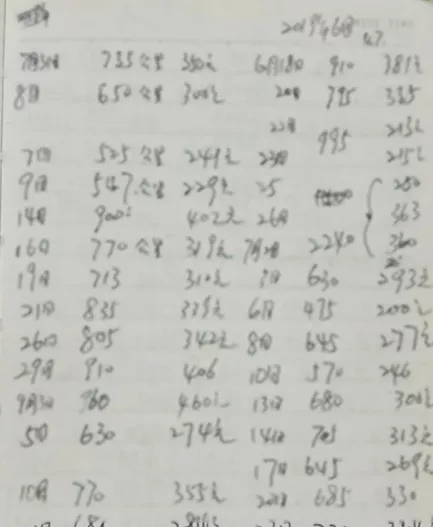 2019年6月
7月3日 755公里 350元 6月18日 910 381元
8日 650公里 300元 20日 795 335
22日 995 213元
7日 525公里 249元 23日 215元
9日 547公里 229元 25 250
14日 900 402元 26日 363
16日 770公里 319元 7月2日 2240 360
19日 713 310元 3日 630 293元
21日 835 339元 6日 475 200元
26日 805 342元 8日 645 277元
29日 910 406 10日 570 246
9月3日 960 460元 13日 680 300元
5日 630 274元 14日 705 313元
17日 645 269元
10日 770 355元 20日 685 330